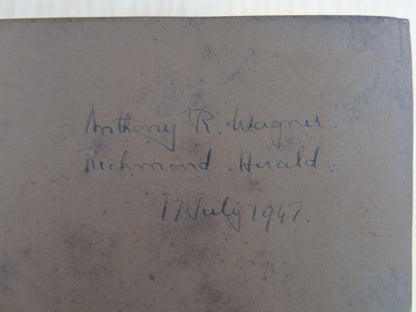 Anthony R. Wagner.
Richmond Herald.
17 July 1947.